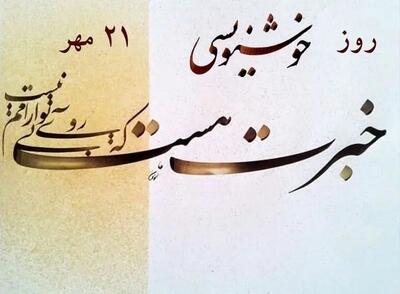 روز خوشنویسی ۲۱ مهر
خبرت هست که بی روی تو آرامم نیست